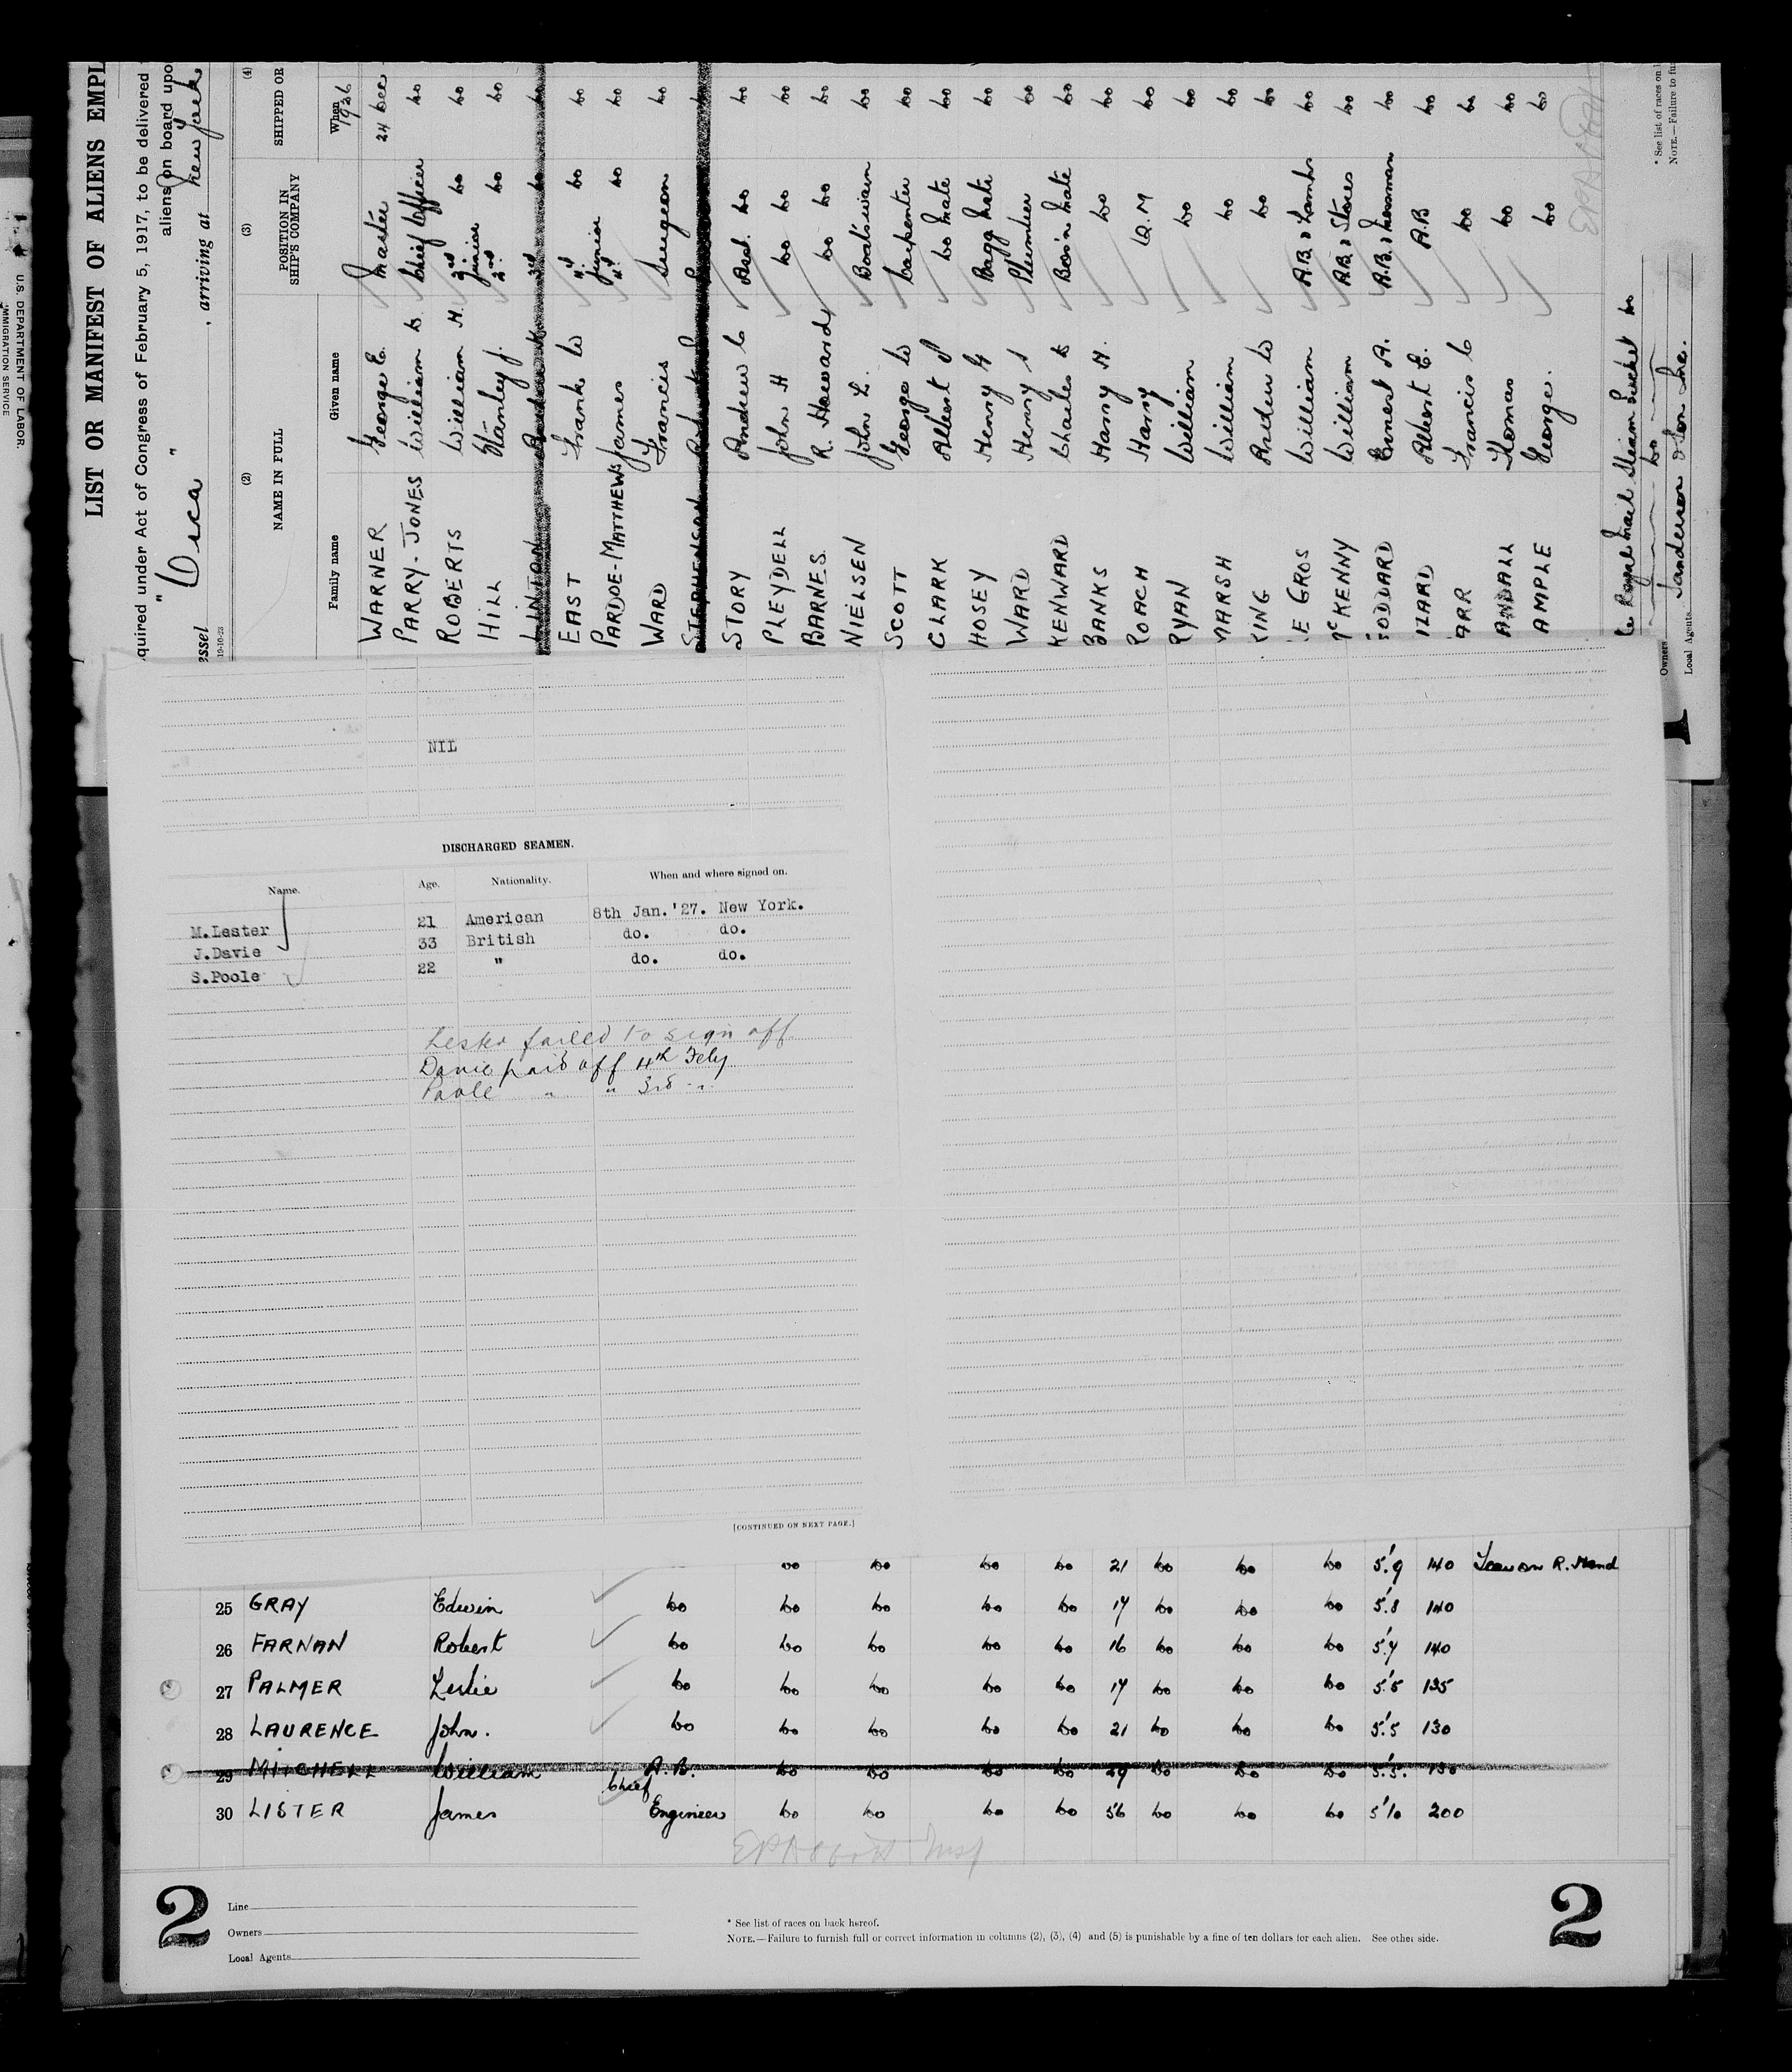 LIST OR MANIFEST OF ALIENS EMPL
quired under Act of Congress of February 5, 1917, to be delivered
aliens on board upo
essel " Orca " , arriving at New York
19-10-23
(2) (3) (4)
NAME IN FULL POSITION IN SHIP'S COMPANY SHIPPED OR
Family name Given name When 1926
WARNER George E. Master 24 Dec
PARRY-JONES William Chief Officer do
ROBERTS William H. 2nd do do
HILL Stanley J. Junior 2nd do do
LINTON 3rd do do
EAST Frank W 4th do do
PARDOE-MATTHEWS James Junior 4th do do
WARD Francis Surgeon do
STEPHENSON
STORY Andrew C Asst. do do
PLEYDELL John H do do do
BARNES. R. Howard do do do
NIELSEN John L. Boatswain do
SCOTT George W Carpenter do
CLARK Albert do Mate do
HOSEY Henry G Bagg Mate do
WARD Henry Plumber do
KENWARD Charles Bosn Mate do
BANKS Harry H. do do
ROACH Harry Q.M do
RYAN William do do
MARSH William do do
KING Arthur W do do
LE GROS William A.B. & Lamps do
McKENNY William A.B. & Stores do
GODDARD Ernest A. A.B. & Messman do
IZARD Albert E. A.B do
ARR Francis C do do
ANDALL Thomas do do
AMPLE George. do do
Royal Mail Steam Packet Co
Owners do
Local Agents Sanderson & Son Inc.
* See list of races on
NOTE.—Failure to fu
U.S. DEPARTMENT OF LABOR.
IMMIGRATION SERVICE
NIL
DISCHARGED SEAMEN.
Name. Age. Nationality. When and where signed on.
M.Lester 21 American 8th Jan.'27. New York.
J.Davie 33 British do. do.
S.Poole 22 " do. do.
Lester failed to sign off
Davie paid off 4th Feby
Poole " " 3rd "
[CONTINUED ON NEXT PAGE.]
do do do do 21 do do do 5'.9 140 R. Hand
25 GRAY Edwin do do do do do 17 do do do 5'.8 140
26 FARNAN Robert do do do do do 16 do do do 5'.7 140
27 PALMER Leslie do do do do do 17 do do do 5'.5 135
28 LAURENCE John. do do do do do 21 do do do 5'.5 130
29 MITCHELL William A.B. do do do do 29 do do do 5'.5. 150
30 LISTER James Chief Engineer do do do do 56 do do do 5'10 200
2 2
Line
Owners
Local Agents
* See list of races on back hereof.
NOTE.—Failure to furnish full or correct information in columns (2), (3), (4) and (5) is punishable by a fine of ten dollars for each alien. See other side.